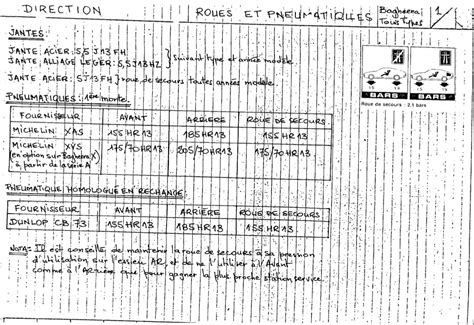 DIRECTION
ROUES ET PNEUMATIQUES
Bagheera
Tous Types
1
JANTES:
JANTE: ACIER: 5,5 J13 FH
JANTE: ALLIAGE LEGER: 5,5 J13 H2 } suivant type et année modèle
JANTE ACIER: 5 J13 FH } roue de secours toutes années modèle.
PNEUMATIQUES: 1ère monte.
FOURNISSEUR AVANT ARRIERE ROUE DE SECOURS
MICHELIN XAS 155 HR 13 185 HR 13 155 HR 13
MICHELIN XVS 175/70 HR 13 205/70 HR 13 175/70 HR 13
(en option sur Bagheera X)
à partir de la série A
BARS BARS
Roue de secours : 2,1 bars
PNEUMATIQUE HOMOLOGUE EN RECHANGE:
FOURNISSEUR AVANT ARRIERE ROUE DE SECOURS
DUNLOP CB 73 155 HR 13 185 HR 13 155 HR 13
NOTA: Il est conseillé de maintenir la roue de secours à sa pression
d'utilisation sur l'essieu AR, et de ne l'utiliser à l'Avant
comme à l'Arrière que pour gagner la plus proche station service.